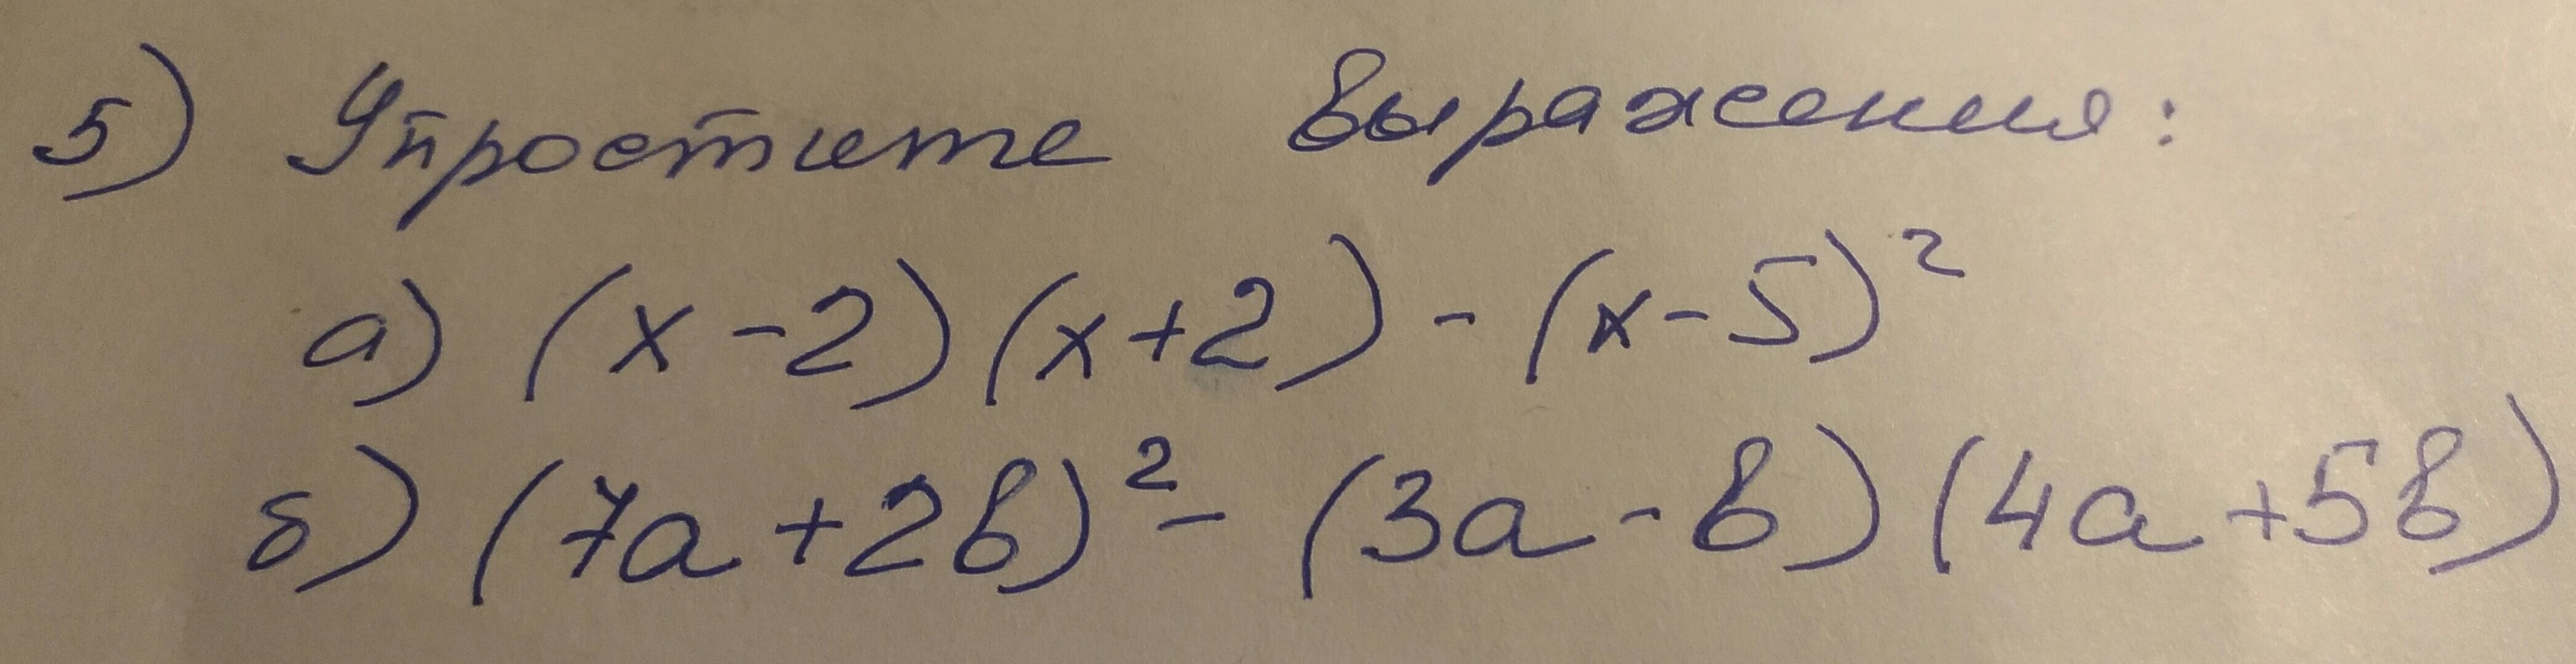 5) Упростите выражения:
а) (x-2)(x+2)-(x-5)²
б) (7a+2b)²-(3a-b)(4a+5b)